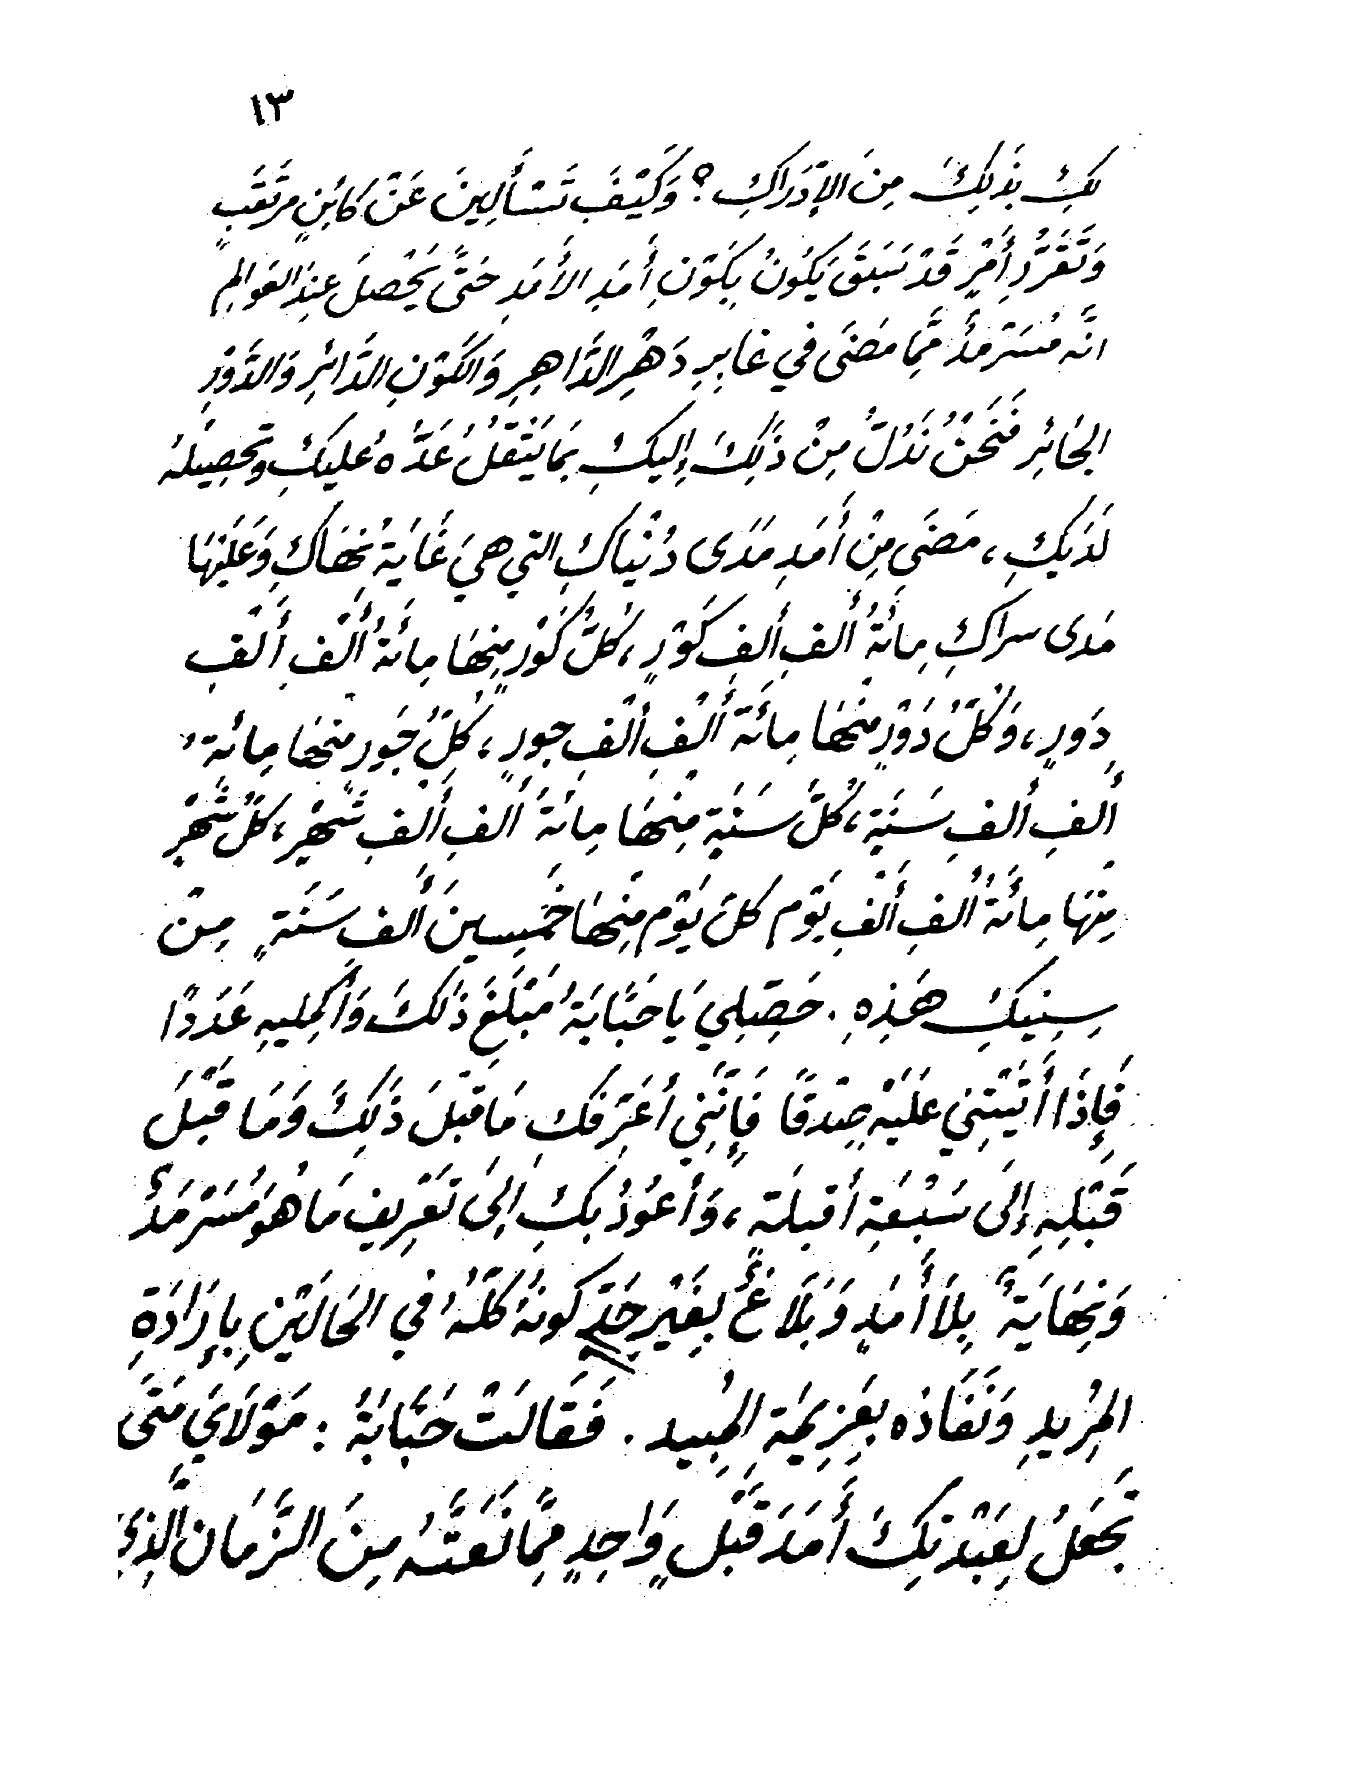 ١٣
لكِ بِذَلِكَ مِنَ الإِدْرَاكِ ؟ وَكَيْفَ تَسْأَلِينَ عَنْ كَائِنٍ مرتَقَبٍ
وَتَفَرُّدِ أَمْرٍ قَدْ سَبَقَ يَكُونُ بِكَوْنِ أَمَدِ الأَمَدِ حَتَّى يَحْصلَ عِندَ العَوالِمِ
انَّه مُسَرْمَدٌ مَّمِا مَضَى في غابِرِ دَهْرِ الدَّاهِرِ وَالكَوْنِ الدَّائِرِ وَالدَّوْرِ
الجَائِرِ فَنَحْنُ نَدُلُّ مِنْ ذَلِكَ إِليكِ بمَا يَثْقُلُ عَدُّهُ عليكِ وتحصِيلهُ
لَدَيكِ ، مَضَى مِنْ أَمَدِ مَدَى دُنْيَاكِ التي هيَ غَايَةُ نِهَاكِ وَعَلَيْهَا
مَدى سراكِ مِائَةُ أَلفِ أَلفِ كَوْرٍ ، كُلُّ كَوْرٍ مِنهَا مِائَةُ أَلْفِ أَلْفِ
دَورٍ ، وَكُلُّ دَوْرٍ مِنهَا مِائَةَ أَلْفِ أَلْفِ جورٍ ، كُلُّ جَورٍ منهَا مِائةُ
أَلفِ أَلفِ سَنَةٍ ، كُلُّ سَنَةٍ مِنهَا مِائَةُ أَلفِ أَلفِ شَهْرٍ ، كلُّ شَهْرٍ
مِنْهَا مِائَةُ أَلفِ أَلْفِ يَوْم كلّ يَوْم مِنهَا خَمسِينَ أَلفِ سَنَةٍ مِنْ
سِنِيكِ هَذِهِ . حَصِّلِي يَا حَبَّابَةُ مَبْلَغَ ذَلكَ وَأَكمِليهِ عَدَدًا
فَإِذَا أَتَيْتِنِي عَلَيْه صِدْقًا فَإِنَّنِي أعَرِّفكِ مَا قَبْلَ ذَلِكَ وَمَا قَبْلَ
قَبْلِهِ إِلَى سَبْعَةِ أقبلَة ، وَأعُودُ بكِ إِلَى تَعْرِيفِ مَا هُوَ مُسَرْمَدٌ
وَنِهَايَةٌ بِلاَ أَمَدٍ وَبَلَاغٌ بِغَيْرِ حَدٍّ كونهُ كُلّهُ في الحَالَتَيْنِ بِإِرَادَةِ
المُرِيدِ وَنَفَاذه بِعَزِيمَةِ المُبِيد . فَقَالَتْ حَبَّابَةُ : مَوْلَايَ مَتَى
تَجْعَلُ لِعَبْدتِكَ أَمَدَ قَبْلٍ وَاحِدٍ مِمَّا نَعَتَّهُ مِنَ الزَّمَانِ الَّذِي